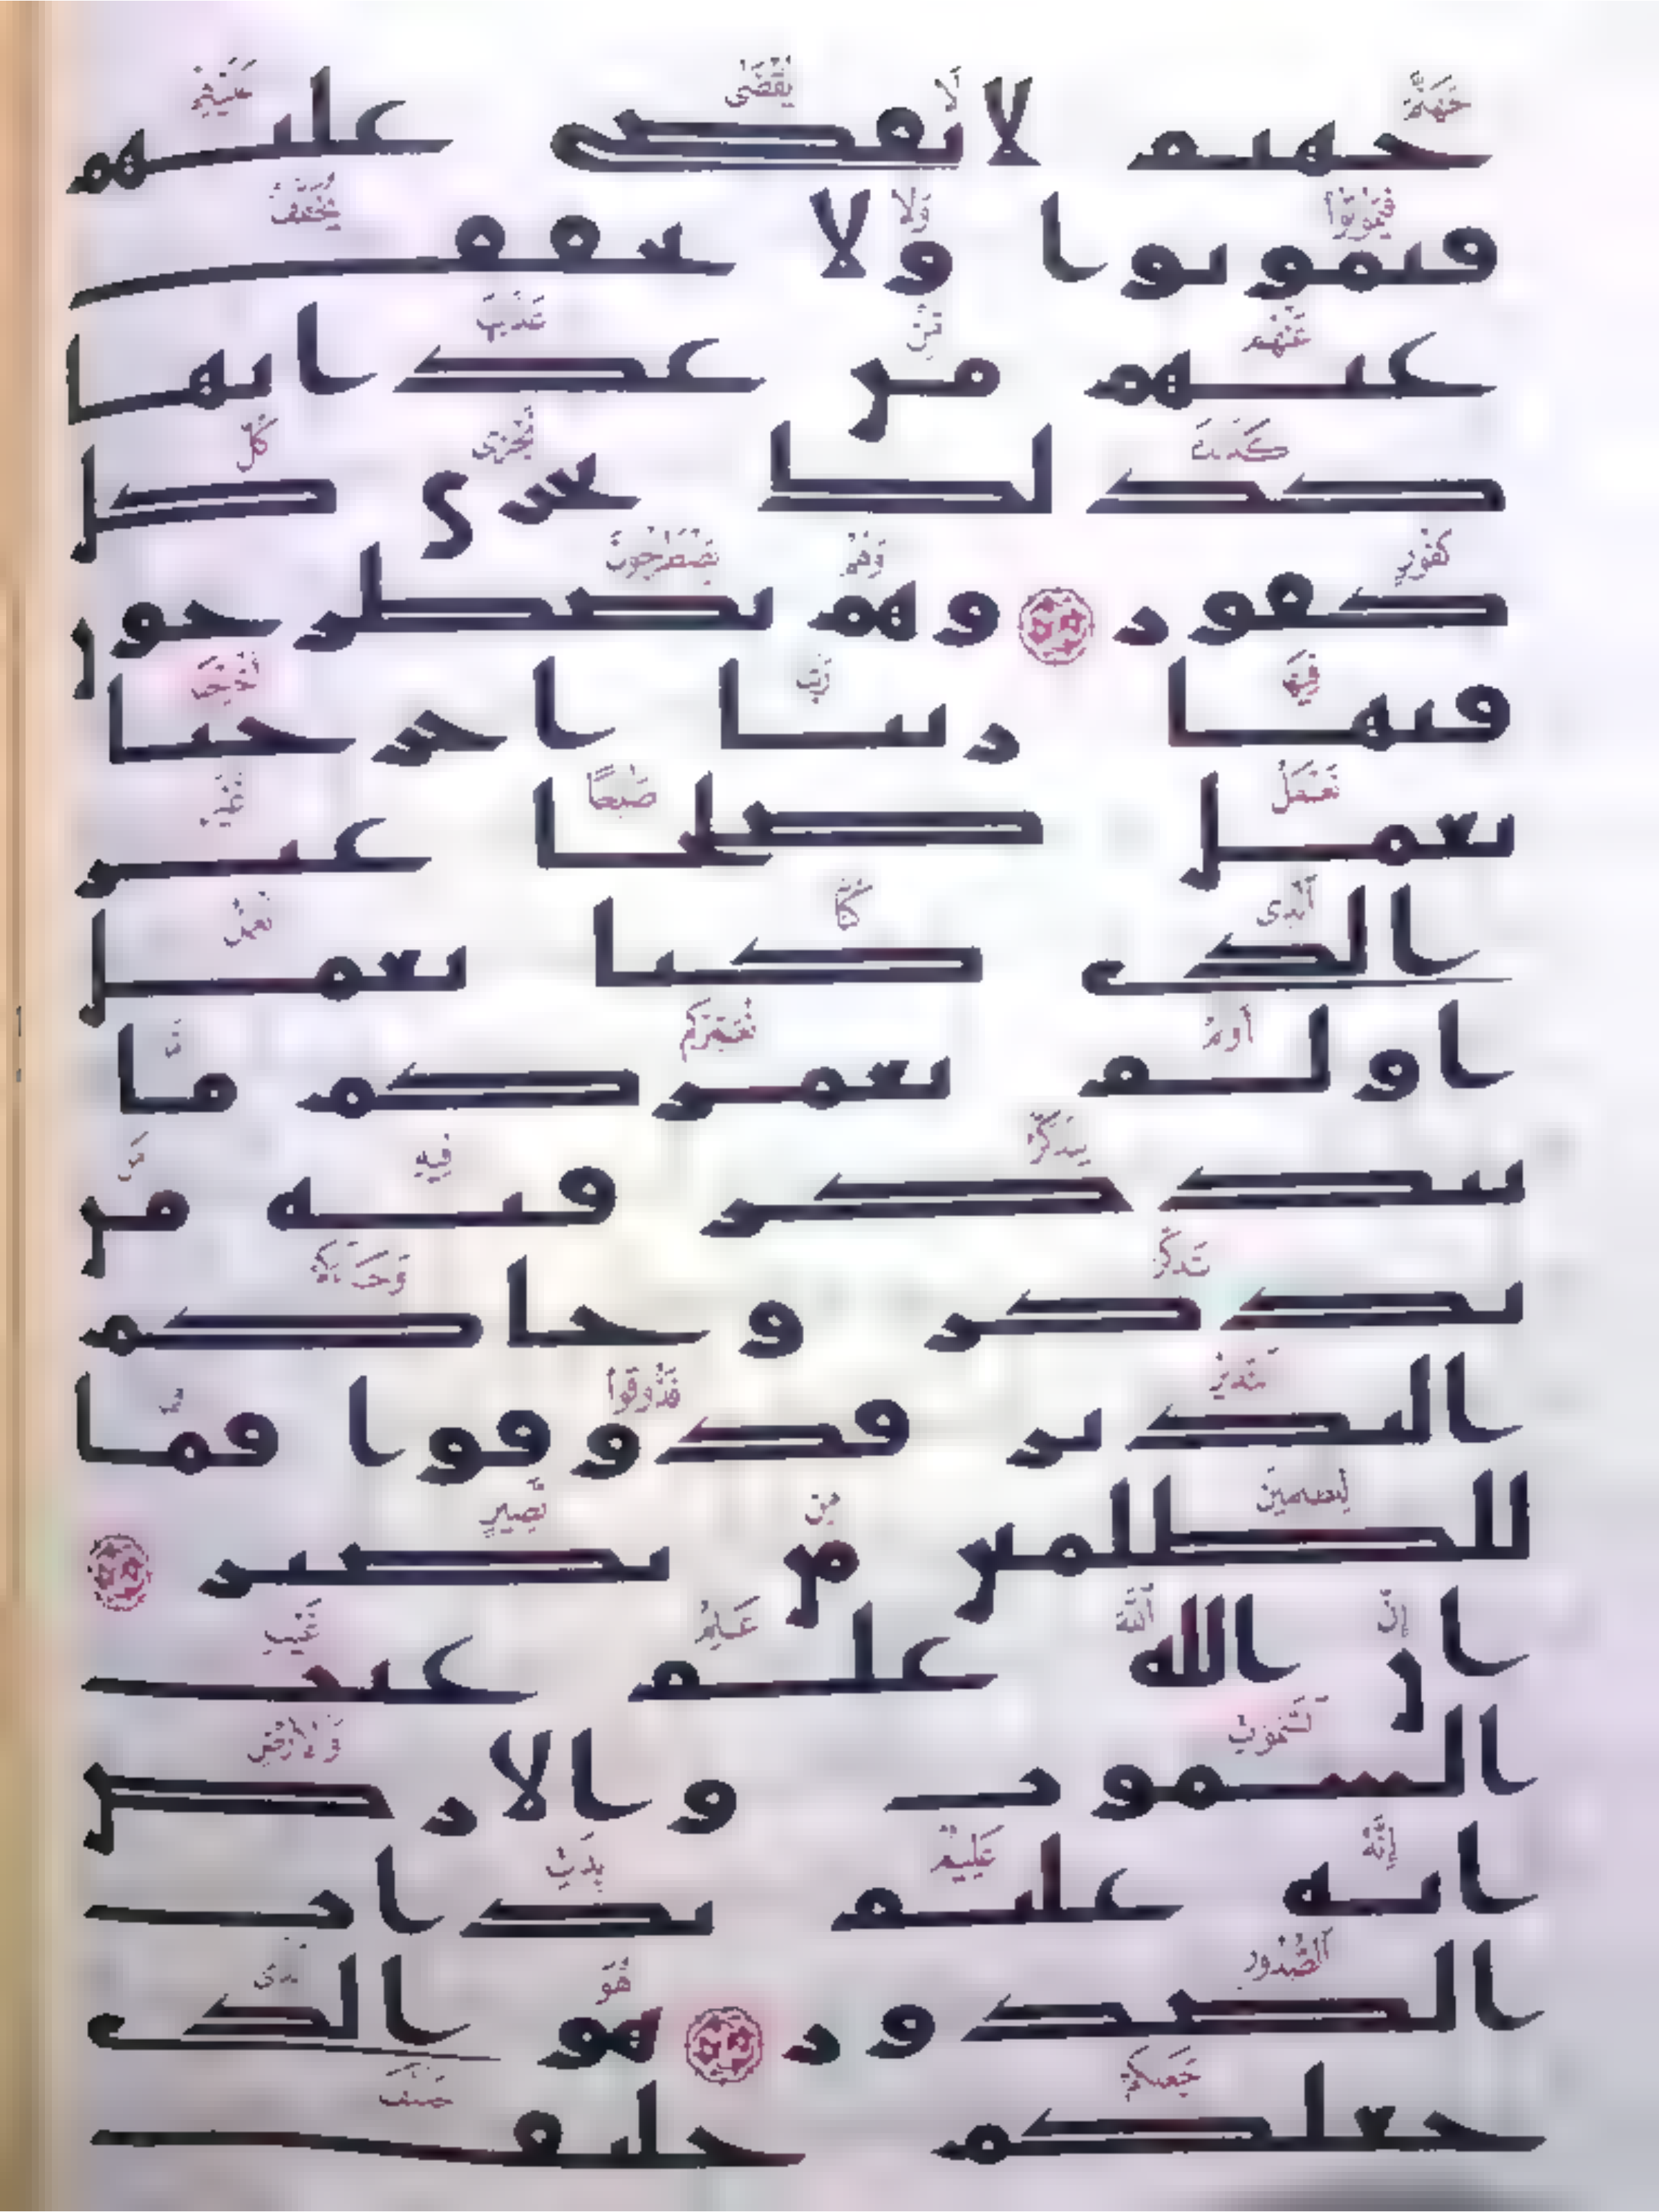 جهنم لا يقضى عليهم
فيموتوا ولا يخفف
عنهم من عذابها
كذلك نجزى كل
كفور وهم يصطرخون
فيها ربنا اخرجنا
نعمل صلحا غير
الذى كنا نعمل
اولم نعمركم ما
يتذكر فيه من
تذكر وجاكم
النذير فذوقوا فما
للظلمين من نصير
ان الله علم غيب
السموت والارض
انه عليم بذات
الصدور هو الذى
جعلكم خليف